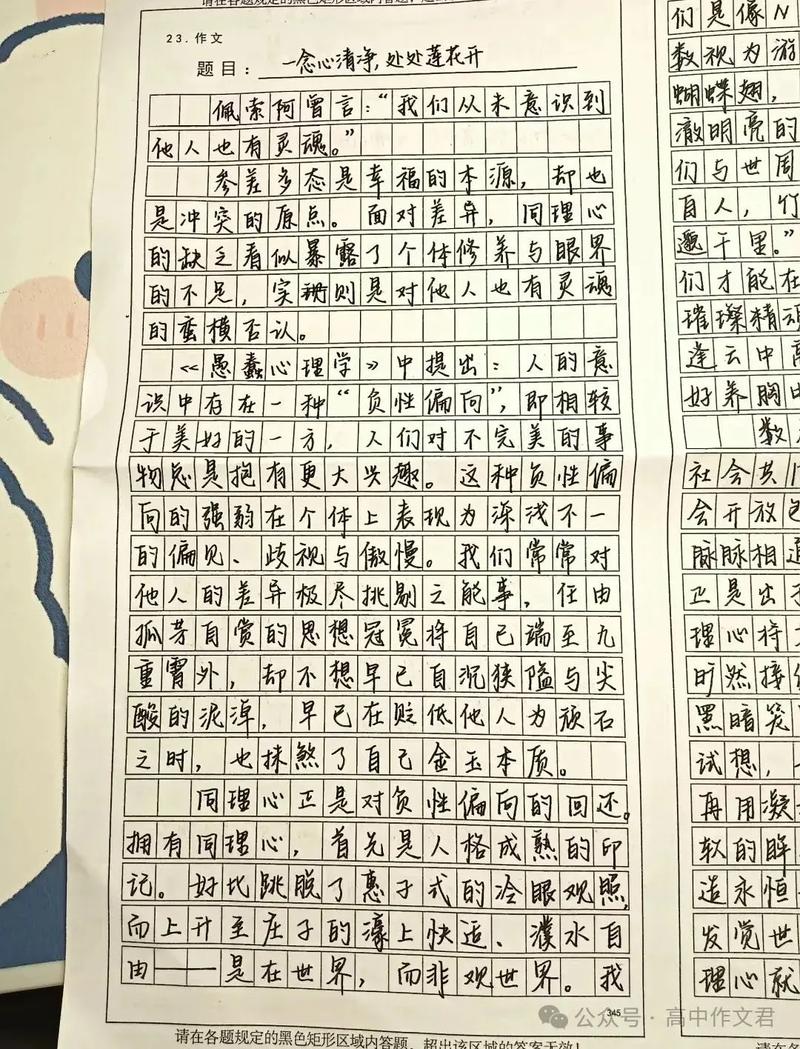 请在各题规定的黑色矩形区域内答题，
23.作文
题目：一念心清净，处处莲花开
佩索阿曾言：“我们从未意识到
他人也有灵魂。”
参差多态是幸福的本源，却也
是冲突的原点。面对差异，同理心
的缺乏看似暴露了个体修养与眼界
的不足，实则是对他人也有灵魂
的蛮横否认。
《愚蠢心理学》中提出：人的意
识中存在一种“负性偏向”，即相较
于美好的一方，人们对不完美的事
物总是抱有更大兴趣。这种负性偏
向的强弱在个体上表现为深浅不一
的偏见、歧视与傲慢。我们常常对
他人的差异极尽挑剔之能事，任由
孤芳自赏的思想冠冕将自己端至九
重霄外，却不想早已自沉狭隘与尖
酸的泥淖，早已在贬低他人为顽石
之时，也抹煞了自己金玉本质。
同理心正是对负性偏向的回还。
拥有同理心，首先是人格成熟的印
记。好比跳脱了惠子式的冷眼观照，
而上升至庄子的濠上快适、濮水自
由——是在世界，而非观世界。我
345
请在各题规定的黑色矩形区域内答题，超出该区域的答案无效！
们是像N
数视为游
蝴蝶翅，
澈明亮的
们与世周
自人，竹
遞千里。”
们才能在
璀璨精魂
逢云中
好养胸中
数
社会共
会开放包
脉脉相通
正是出于
理心将
旷然接
黑暗笼
试想，
再用凝
软的眸
造永恒
发觉世
理心就
请在各题
公众号·高中作文君